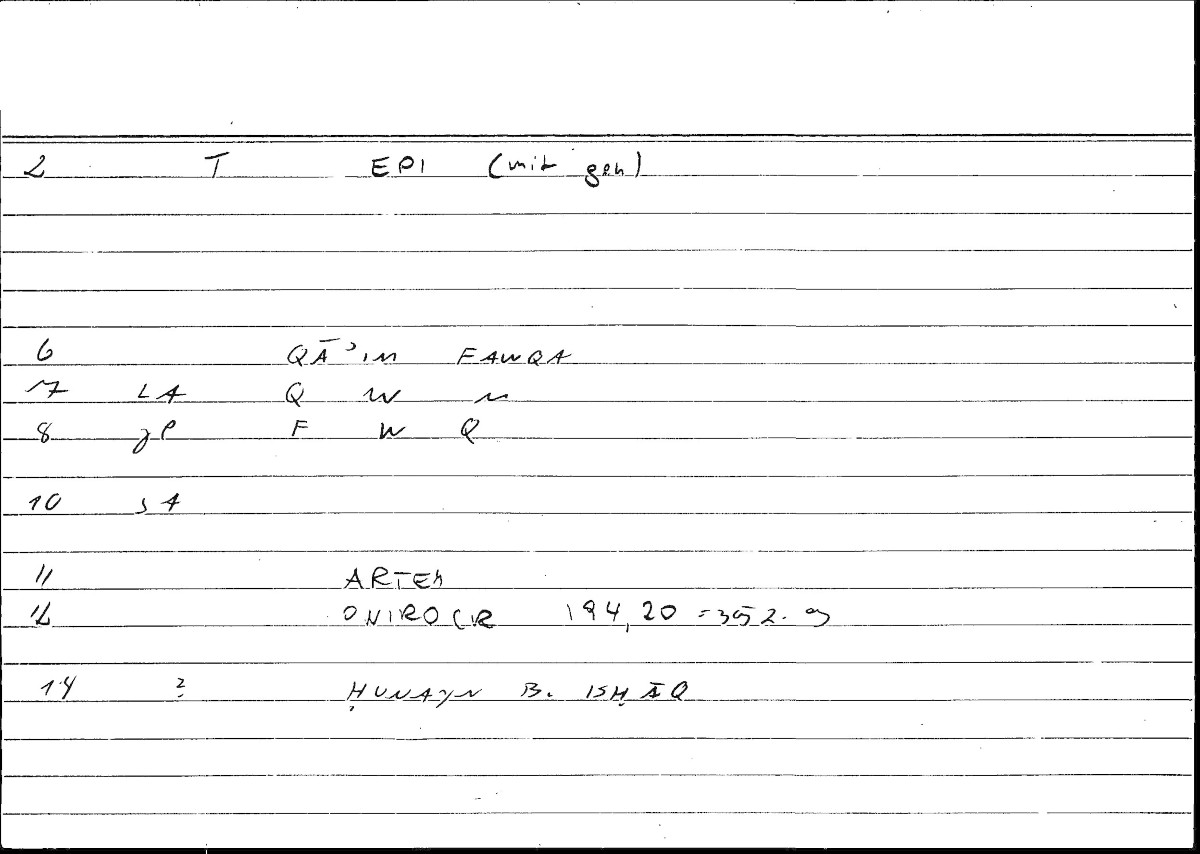 2 T EPI (mit gen)
6 QĀʾIM FAWQA
7 LA Q W M
8 gP F W Q
10 SA
11 ARTEM
12 ONIROCR 194,20 = 352.9
14 ? ḤUNAYN B. ISḤĀQ